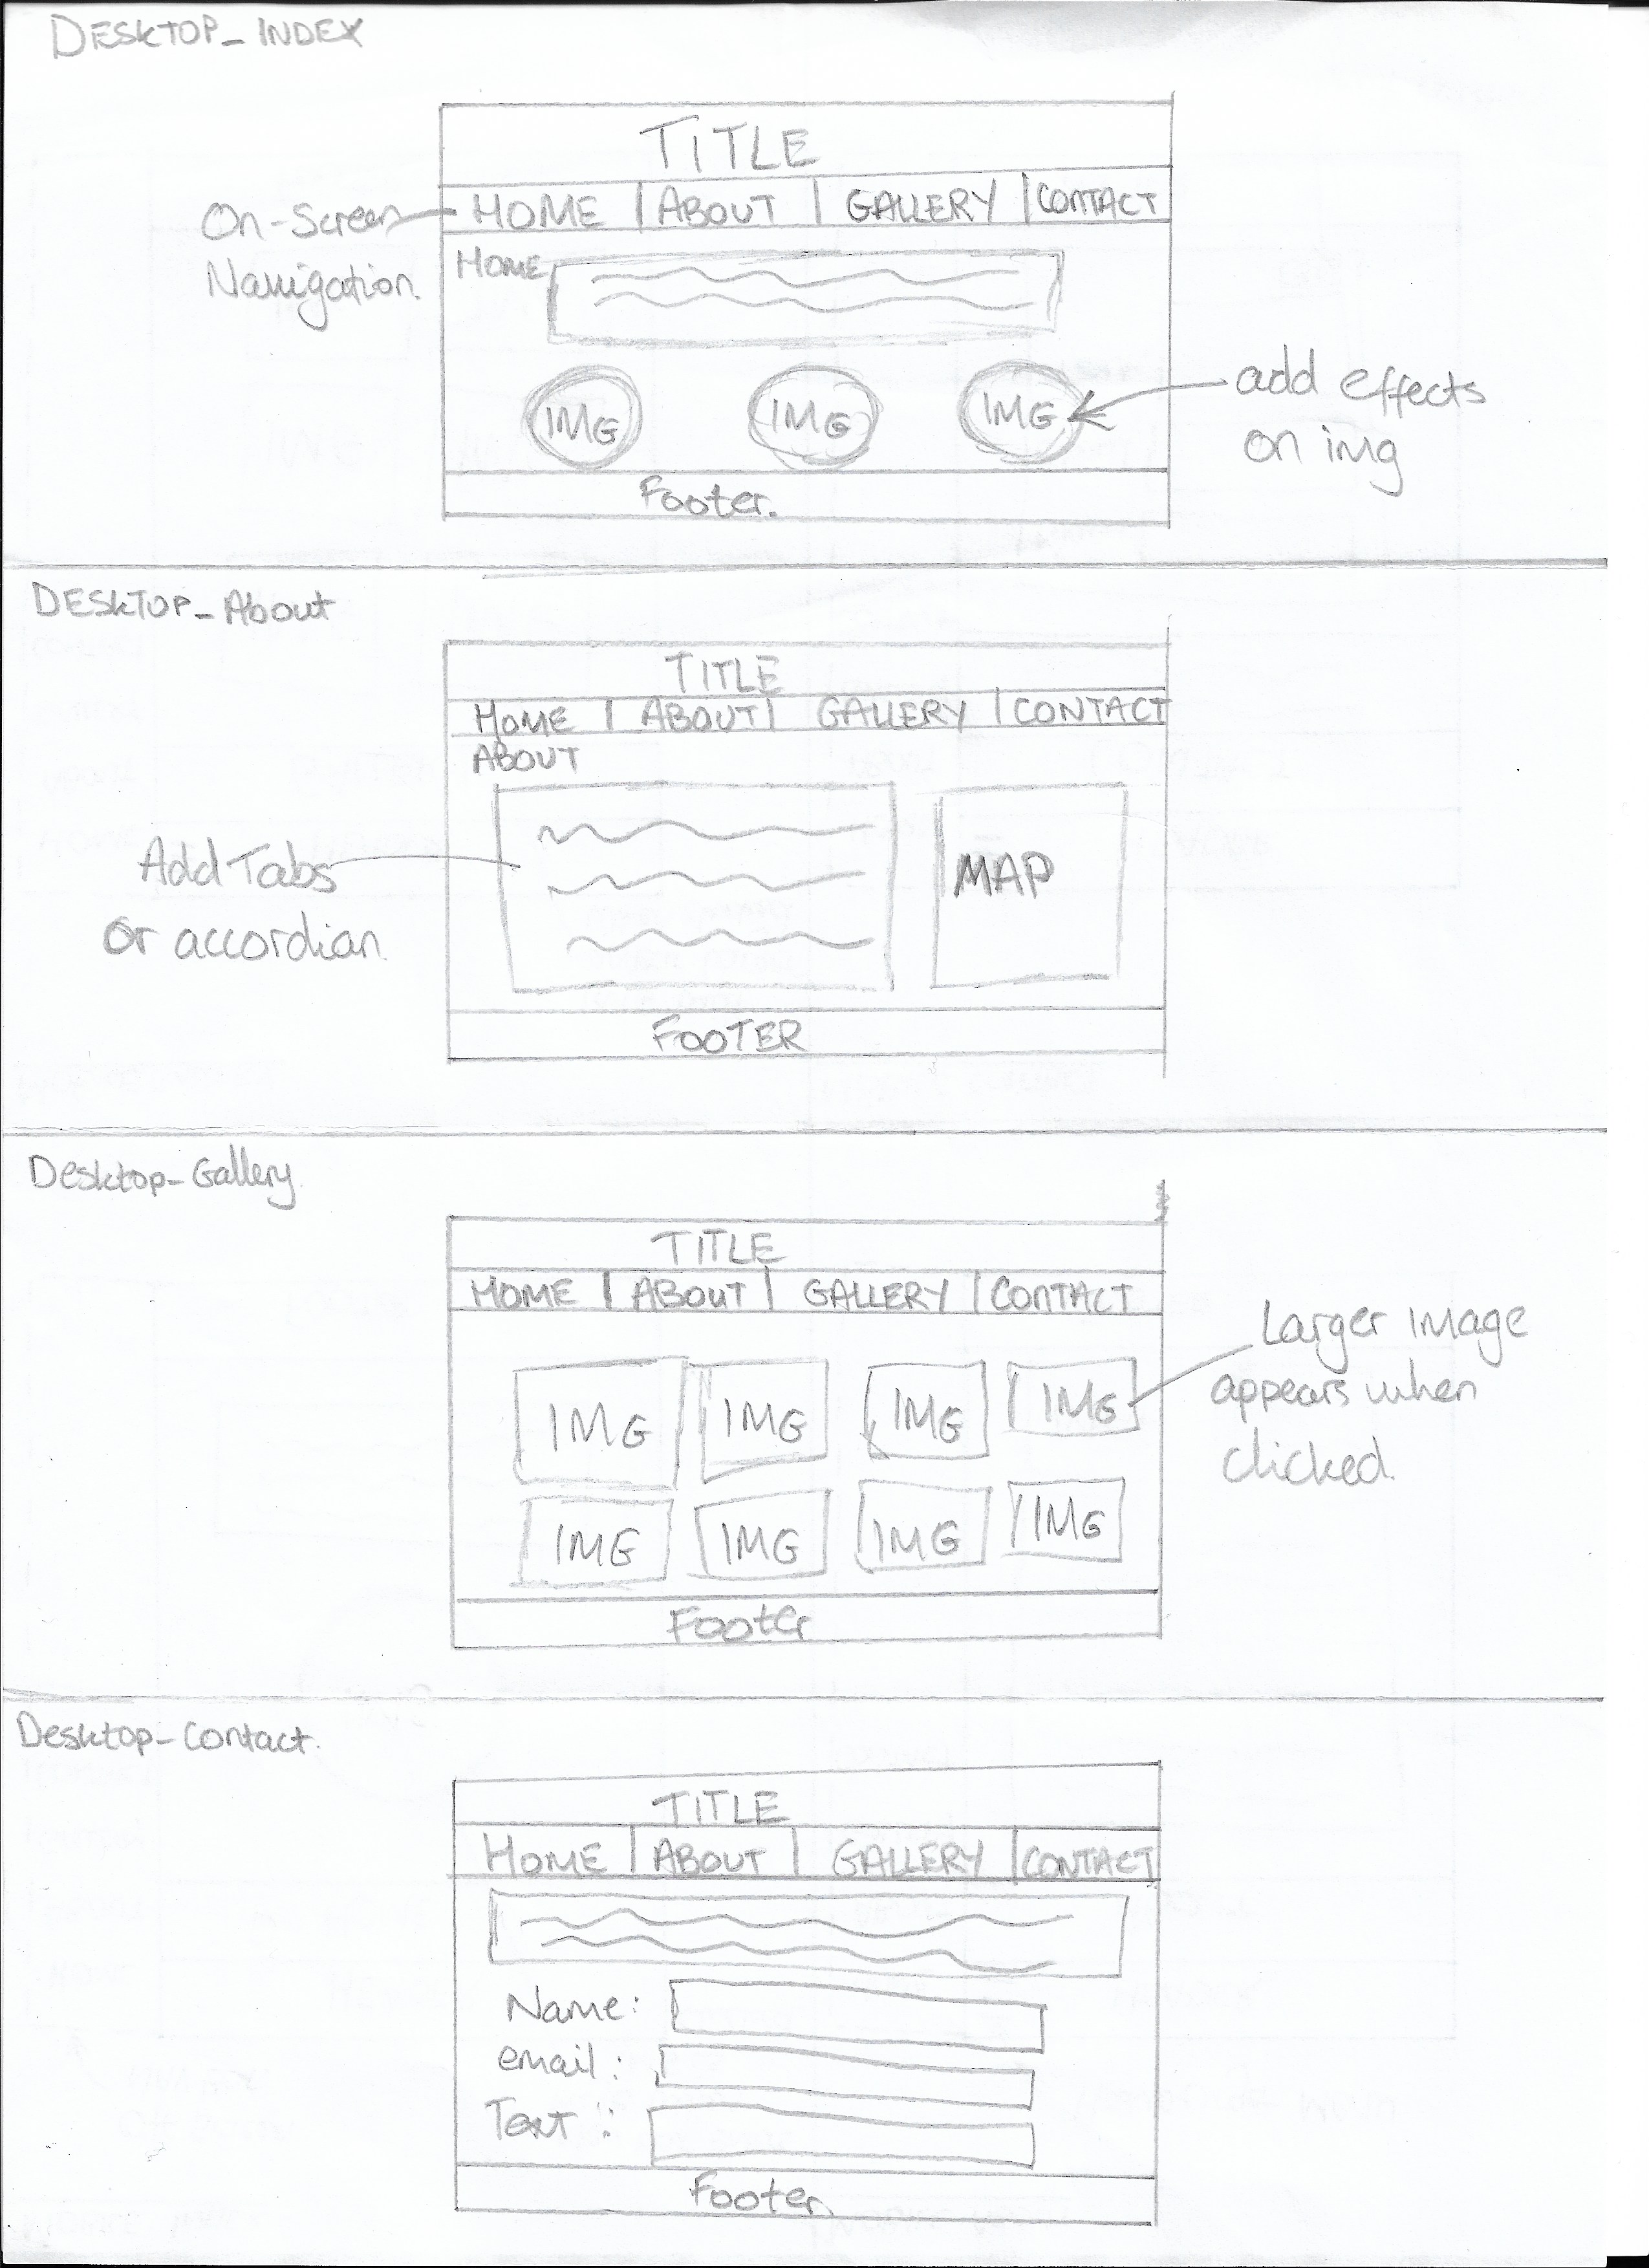 DESKTOP_INDEX
TITLE
HOME | ABOUT | GALLERY | CONTACT
On-Screen
Navigation.
HOME
IMG IMG IMG
add effects
on img
Footer.
DESKTOP_About
TITLE
HOME | ABOUT | GALLERY | CONTACT
ABOUT
Add Tabs
or accordian
MAP
FOOTER
Desktop_Gallery
TITLE
HOME | ABOUT | GALLERY | CONTACT
IMG IMG IMG IMG
IMG IMG IMG IMG
Larger Image
appears when
clicked.
Footer
Desktop_Contact.
TITLE
HOME | ABOUT | GALLERY | CONTACT
Name:
email:
Text :
Footer